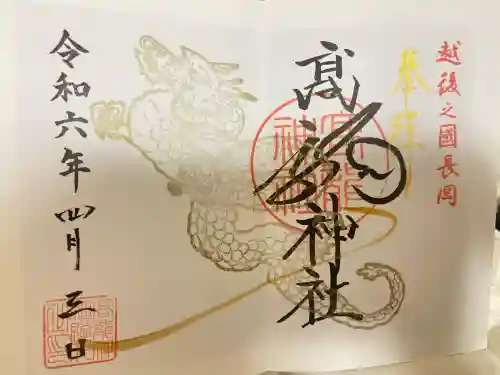 越後之國長岡
奉拝
髙龍神社
令和六年四月三日